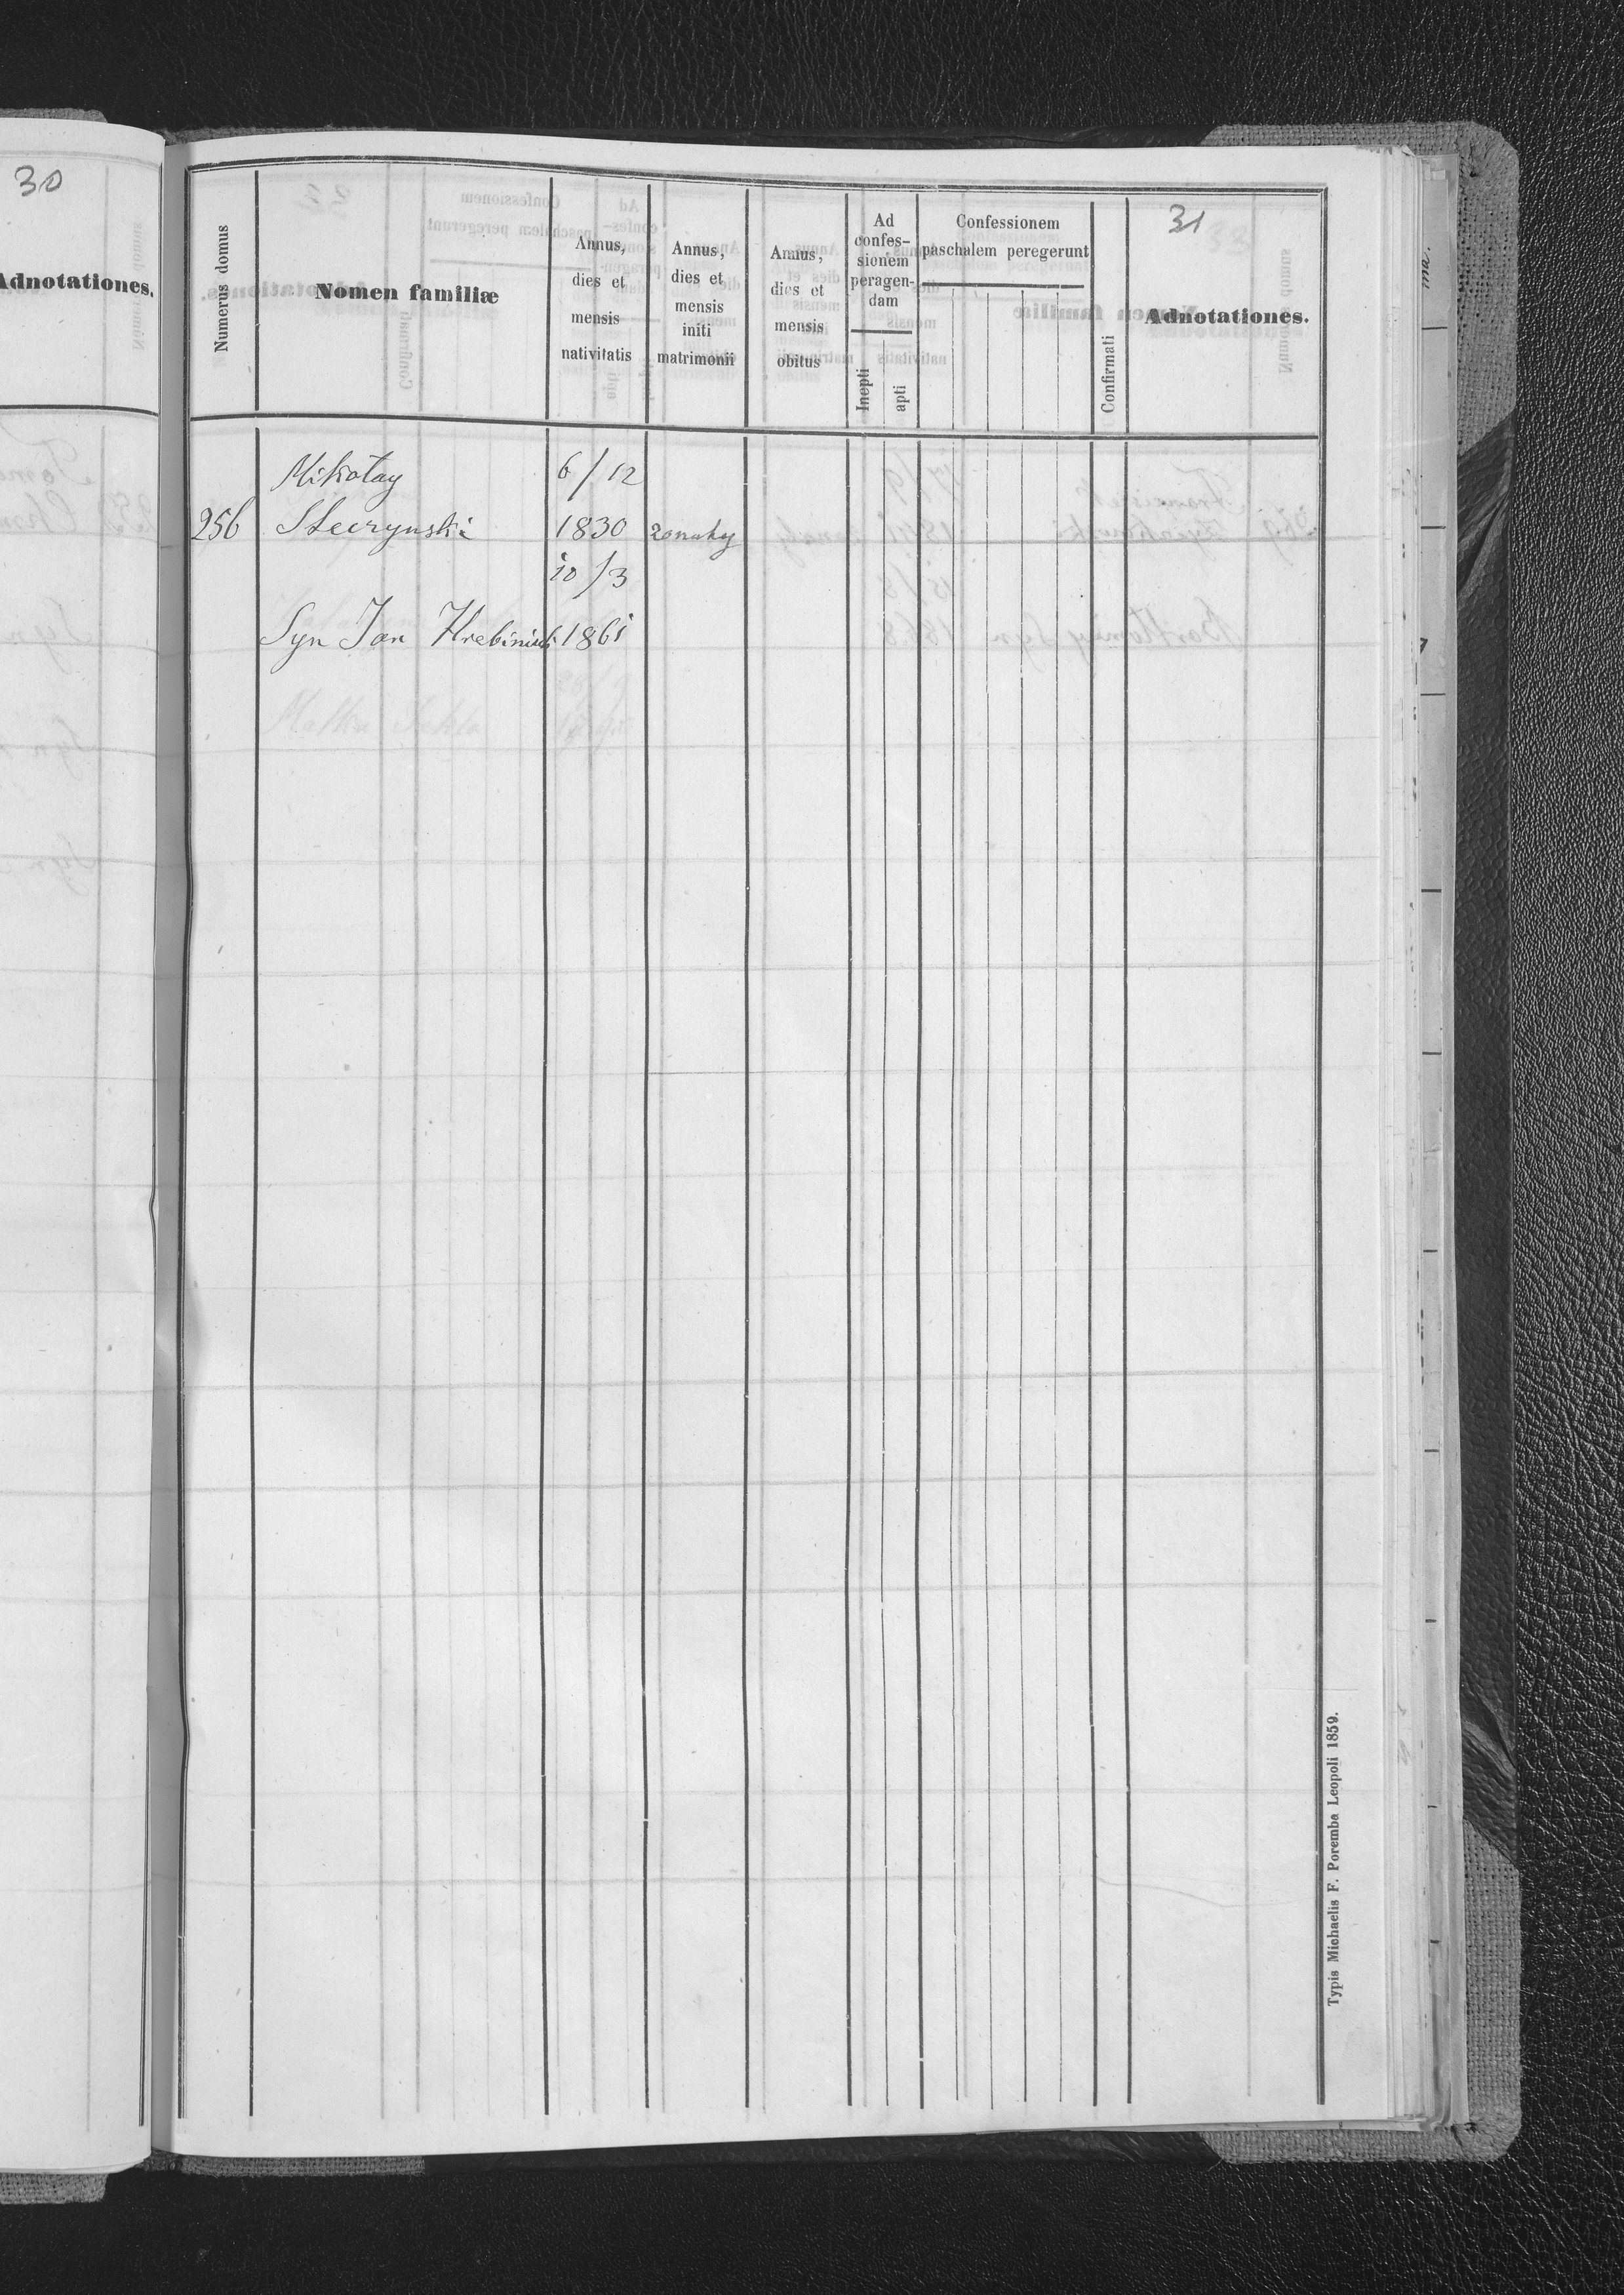 30
Adnotationes.
31
Numerus domus
Nomen familiæ
Annus,
dies et
mensis
nativitatis
Annus,
dies et
mensis
initi
matrimonii
Annus,
dies et
mensis
obitus
Ad
confes-
sionem
peragen-
dam
Inepti
apti
Confessionem
paschalem peregerunt
Confirmati
Adnotationes.
Mikołay 6/12
256 Steczynski 1830 zonaty
10/3
Syn Jan 1861
Typis Michaelis F. Poremba Leopoli 1859.